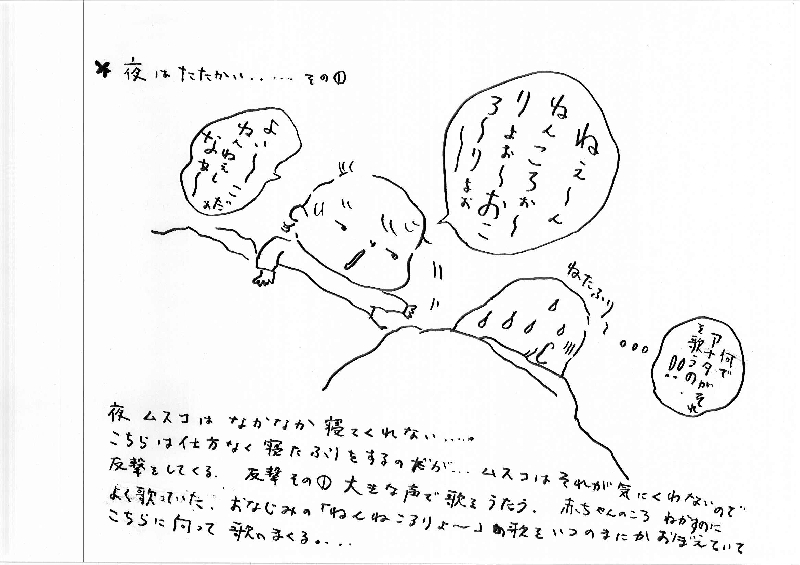 * 夜はたたかい‥‥‥その①
ねぇ〜ん
ねんころぉ〜
りょぉ〜おこ
ろ〜りょぉ
よい〜こだっ
ねんねぇし
なぁ〜
ねたふり〜
何で
アナタがそれ
を歌うの!!
夜 ムスコは なかなか 寝てくれない‥‥。
こちらは仕方なく 寝たふりをするのだが… ムスコはそれが気にくわないので
反撃をしてくる。 反撃その① 大きな声で歌をうたう。 赤ちゃんのころ ねかすのに
よく歌っていた、おなじみの「ねんねころりょ〜」の歌をいつのまにかおぼえていて
こちらに向って 歌いまくる。‥‥